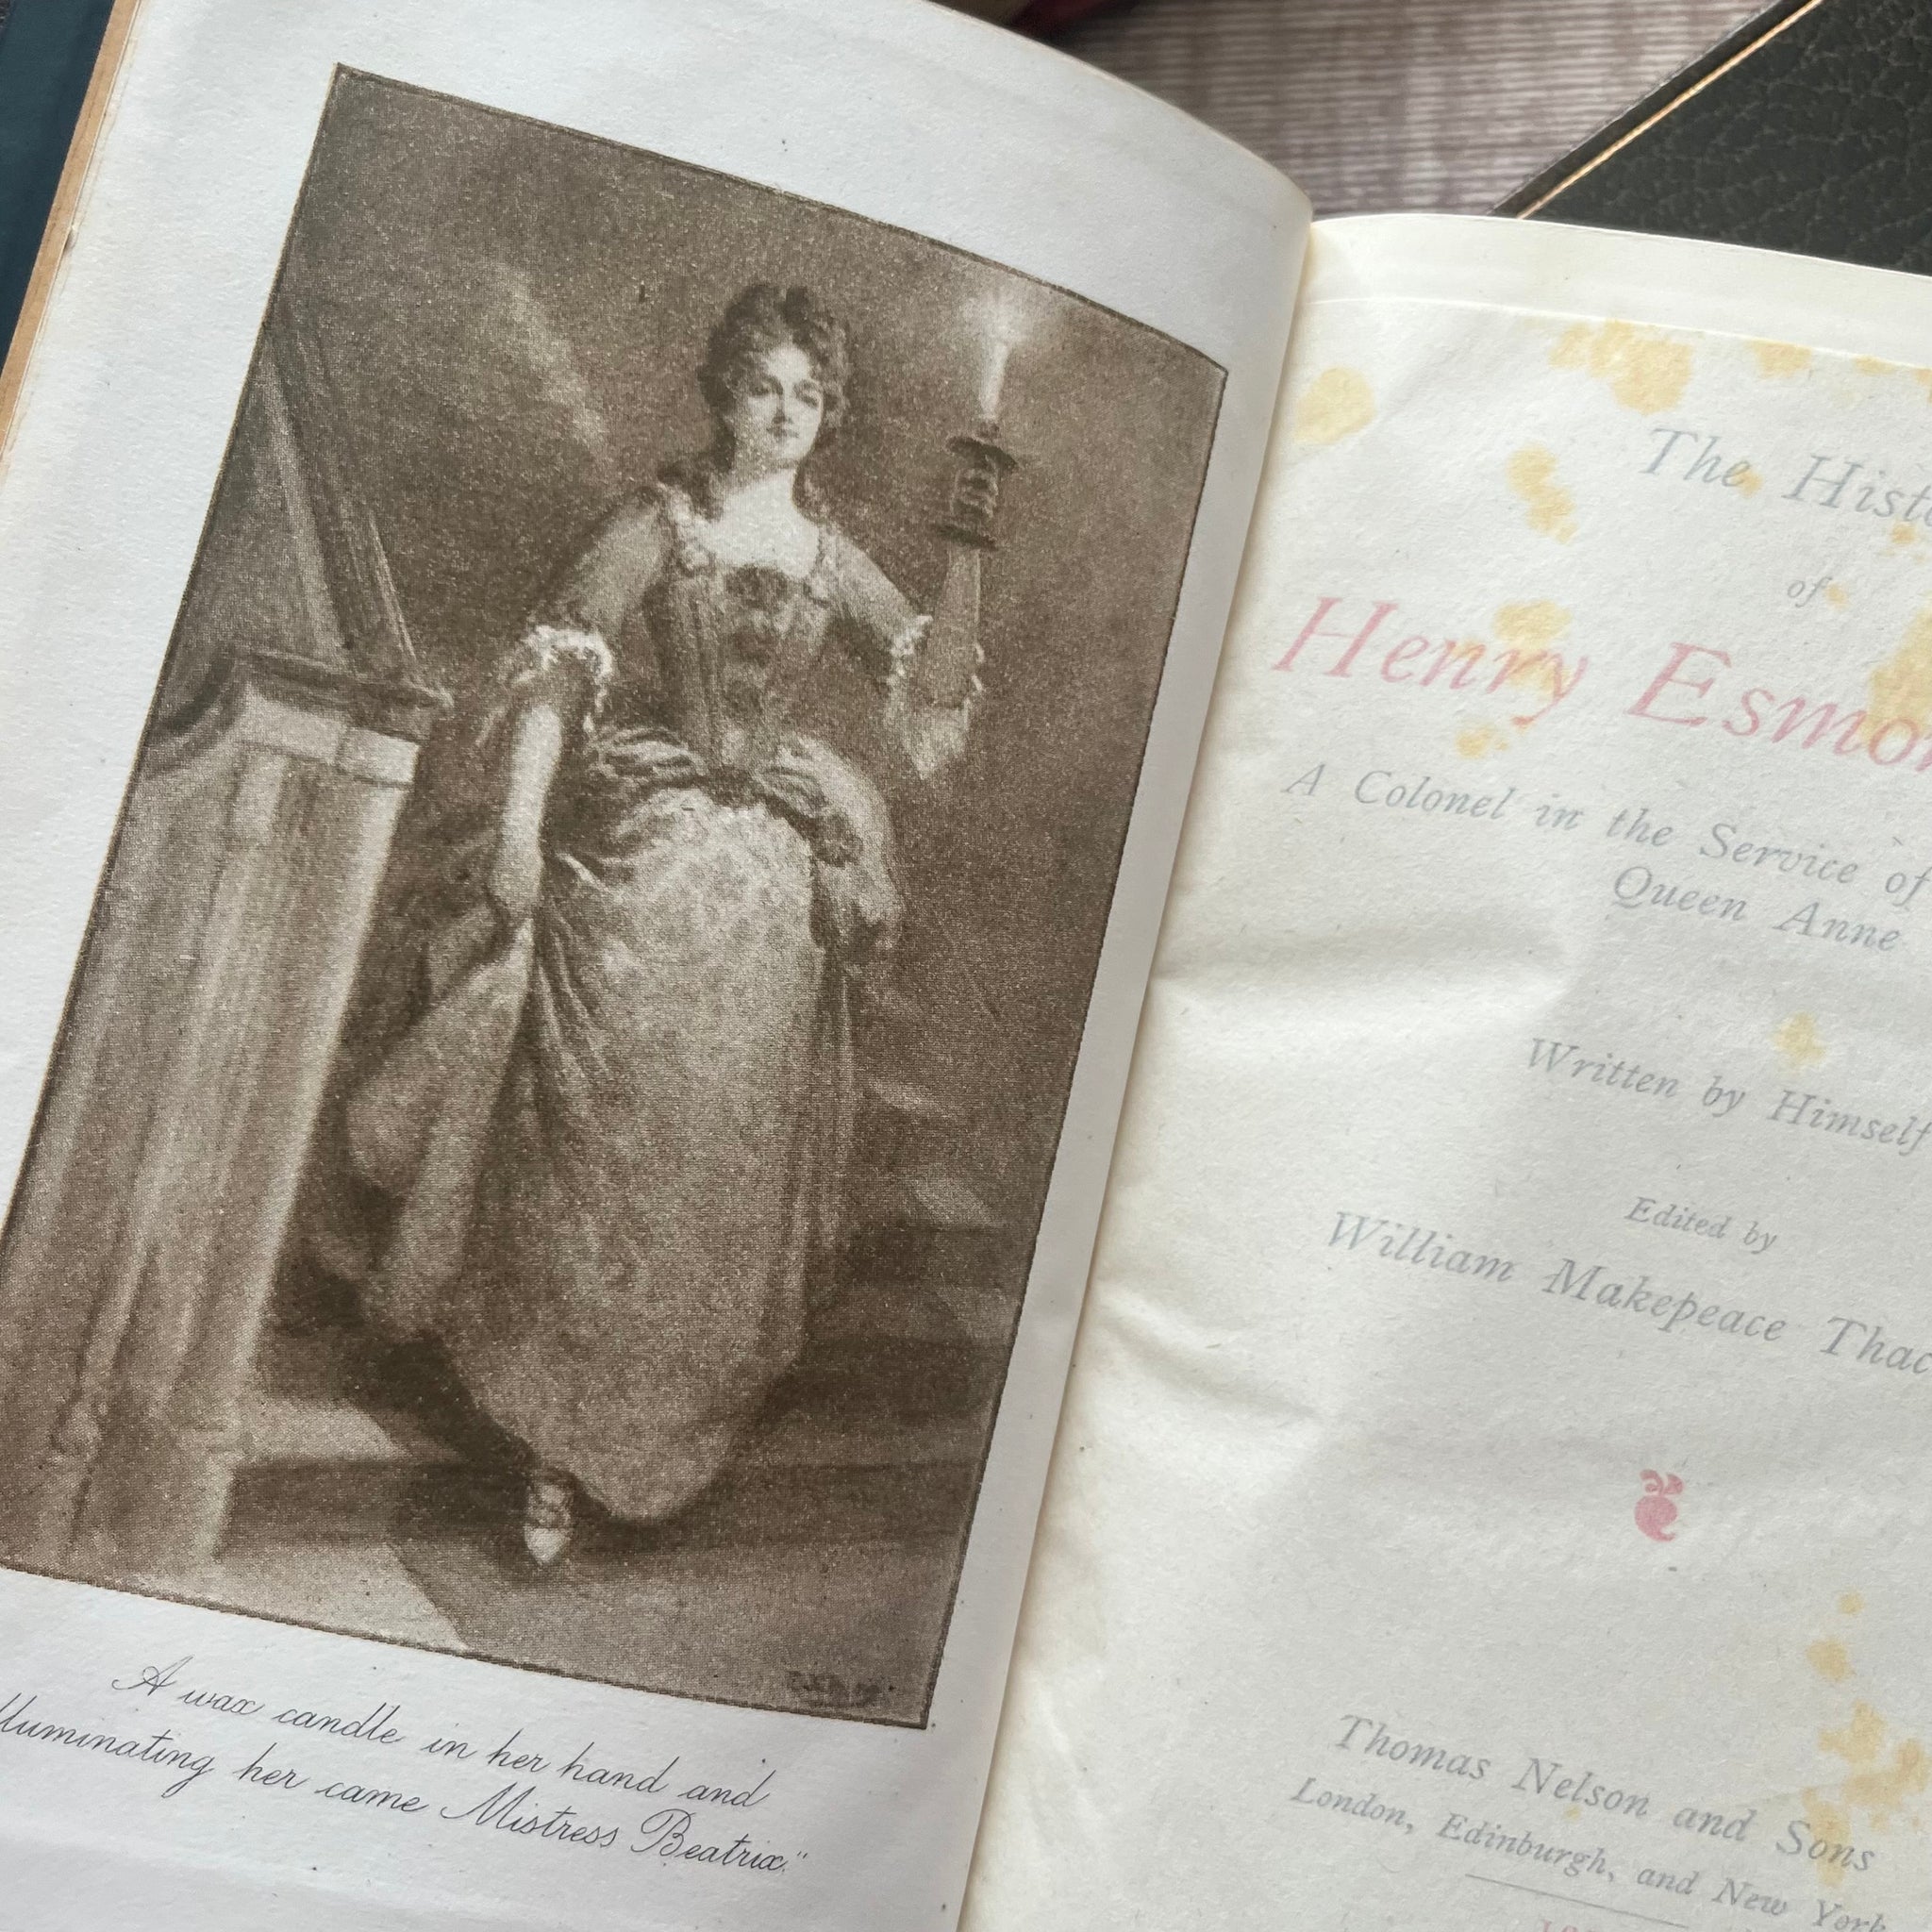 A wax candle in her hand and
lluminating her came Mistress Beatrix."
The Hist
of
Henry Esmon
A Colonel in the Service of
Queen Anne
Written by Himself
Edited by
William Makepeace Thac
Thomas Nelson and Sons
London, Edinburgh, and New York